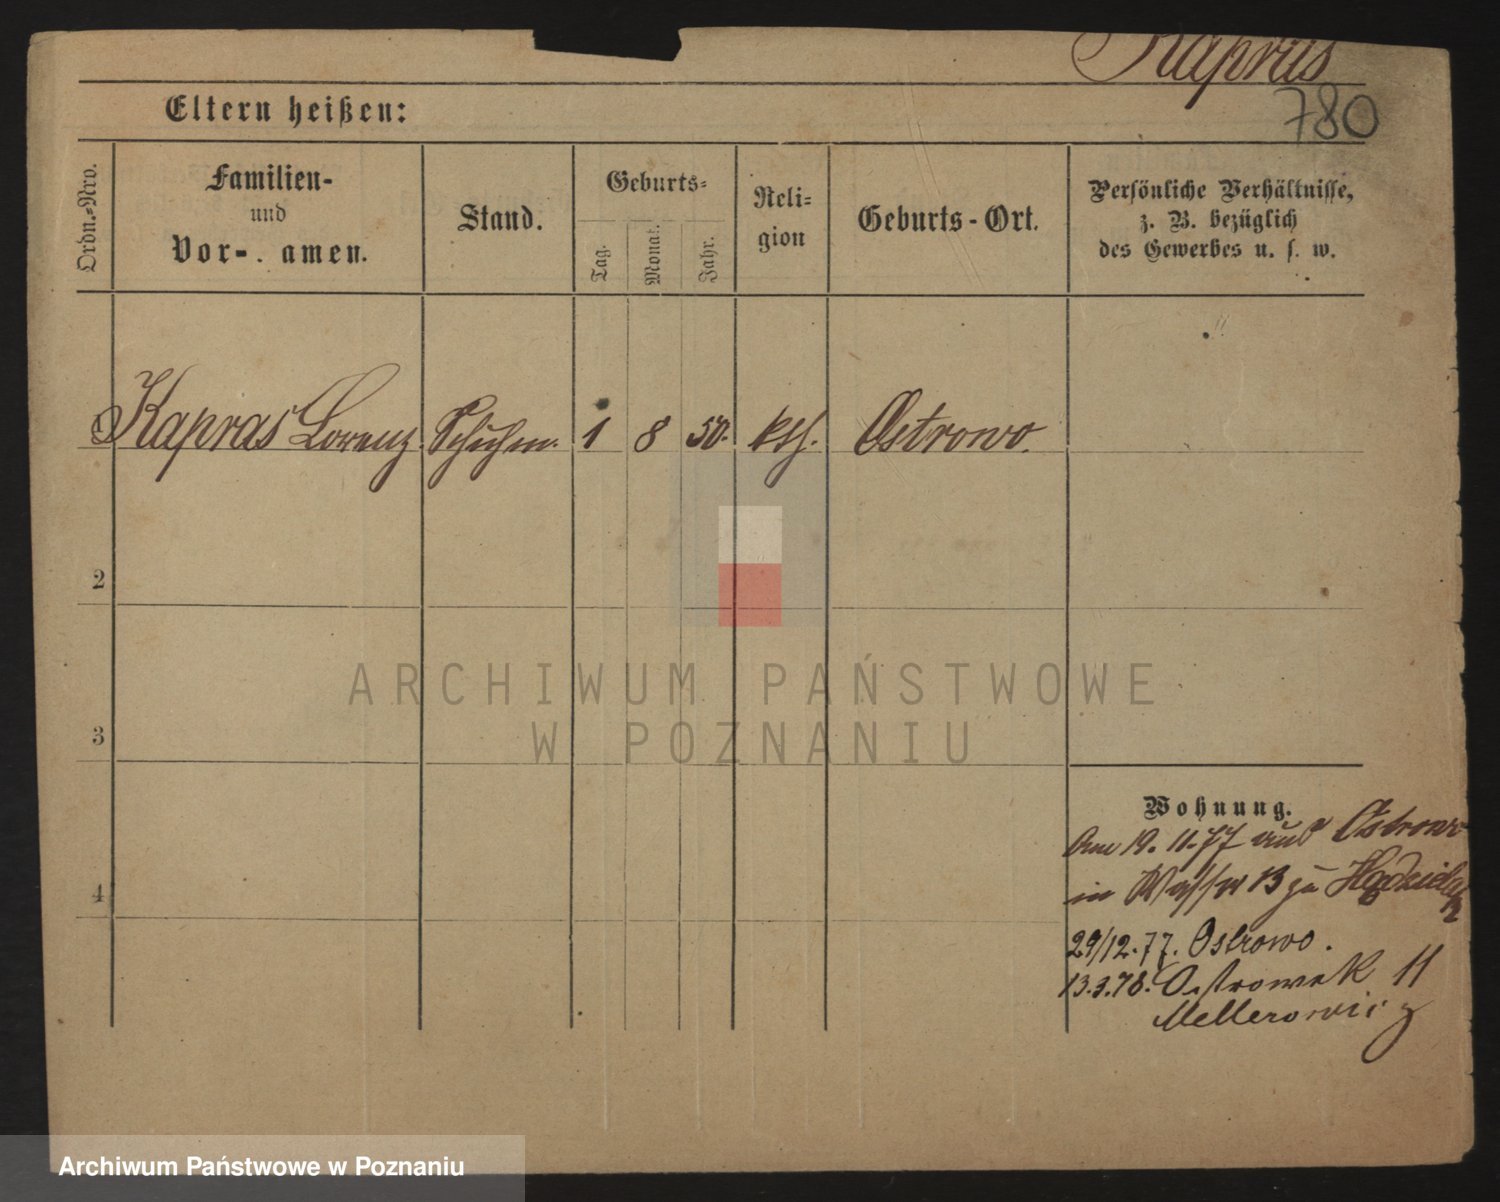 Kapras
780
Eltern heißen:
Ordn.-Nro.
Familien-
und
Vor- . amen.
Stand.
Geburts-
Tag.
Monat.
Jahr.
Reli-
gion
Geburts-Ort.
Persönliche Verhältnisse,
z. B. bezüglich
des Gewerbes u. s. w.
Kapras Lorenz. Schuhm. 1 8 50. kth. Ostrowo.
2
3
4
ARCHIWUM PAŃSTWOWE
W POZNANIU
Wohnung.
Am 19.11.77 aus Ostrowo
in 13 zu
29/12.77. Ostrowo.
13.3.78. Ostrowek 11
Mellerowicz
Archiwum Państwowe w Poznaniu